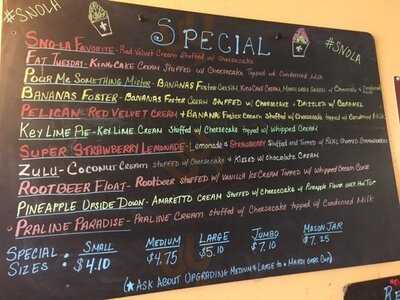 #SNOLA
SPECIAL
#SNOLA
SNO-LA FAVORITE - Red Velvet Cream Stuffed w/ Cheesecake
FAT TUESDAY - KING CAKE CREAM STUFFED w/ CHEESECAKE Topped w/ Condensed Milk
POUR ME SOMETHING MISTER - BANANAS FOSTER CREAM, KING CAKE CREAM,
BANANAS FOSTER - BANANAS FOSTER CREAM STUFFED w/ CHEESECAKE + DRIZZLED w/ CARAMEL
PELICAN - RED VELVET CREAM + BANANA FOSTER CREAM Stuffed w/ Cheesecake topped w/ Condensed Milk
KEY LIME PIE - KEY LIME CREAM Stuffed w/ Cheesecake topped w/ WHIPPED CREAM
SUPER STRAWBERRY LEMONADE - Lemonade & STRAWBERRY Stuffed and Topped w/ REAL Crushed STRAWBERRIES
ZULU - COCONUT CREAM stuffed w/ Cheesecake & Kissed w/ Chocolate CREAM
ROOTBEER FLOAT - Rootbeer stuffed w/ VANILLA ICE CREAM TOPPED w/ WHIPPED CREAM
PINEAPPLE UPSIDE DOWN - AMARETTO CREAM stuffed w/ Cheesecake w/ Pineapple Flavor over the Top
PRALINE PARADISE - PRALINE CREAM stuffed w/ Cheesecake Topped w/ Condensed Milk
SPECIAL SIZES:
SMALL $4.10
MEDIUM $4.75
LARGE $5.10
JUMBO $7.10
MASON JAR $7.25
(★ASK ABOUT UPGRADING MEDIUM & LARGE to a MARDI GRAS CUP)